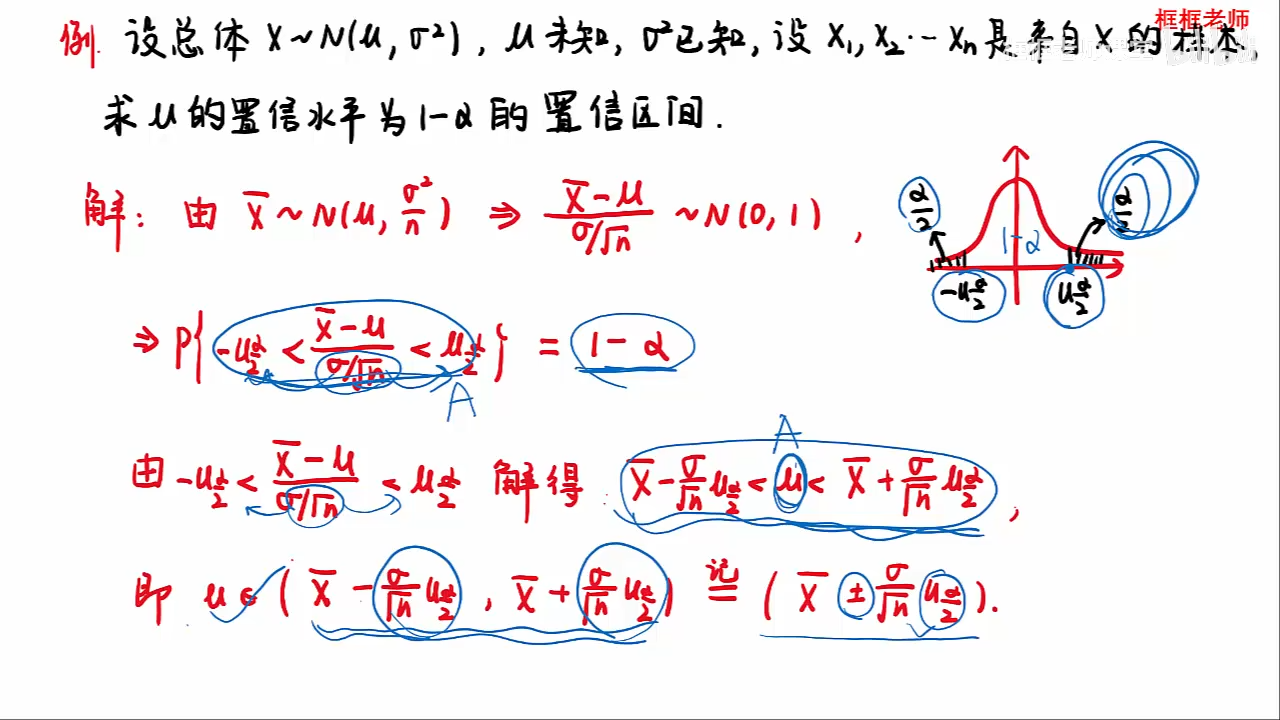 框框老师
例. 设总体 X~N(μ, σ²), μ未知, σ²已知, 设 X₁, X₂ ⋯ Xₙ 是来自 X 的样本,
求 μ 的置信水平为 1-α 的 置信区间.
解: 由 X̄ ~ N(μ, σ²/n) ⇒ (X̄-μ)/(σ/√n) ~ N(0, 1),
α/2 1-α α/2
-u_{α/2} u_{α/2}
⇒ P{ -u_{α/2} < (X̄-μ)/(σ/√n) < u_{α/2} } = 1-α
A
A
由 -u_{α/2} < (X̄-μ)/(σ/√n) < u_{α/2} 解得 X̄ - σ/√n u_{α/2} < μ < X̄ + σ/√n u_{α/2},
即 μ ∈ ( X̄ - σ/√n u_{α/2}, X̄ + σ/√n u_{α/2} ) 记= ( X̄ ± σ/√n u_{α/2} ).